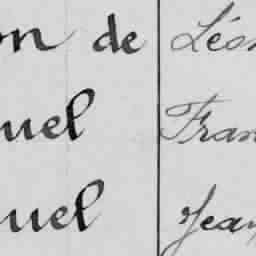 on de Léon
uel Fran
uel Jean